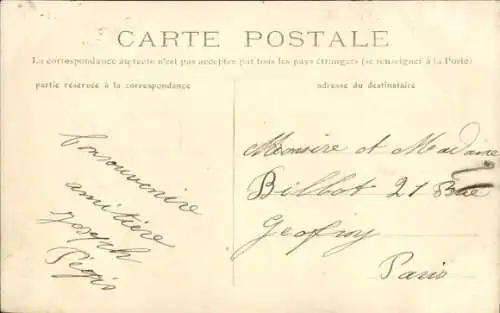 CARTE POSTALE
La correspondance au recto n'est pas acceptée par tous les pays étrangers (se renseigner à la Poste)
partie réservée à la correspondance
adresse du destinataire
Bonsouvenire
amitiére
Joseph
Pégis
Monsire et Madame
Billot 21 Rue
Geofroy
Paris